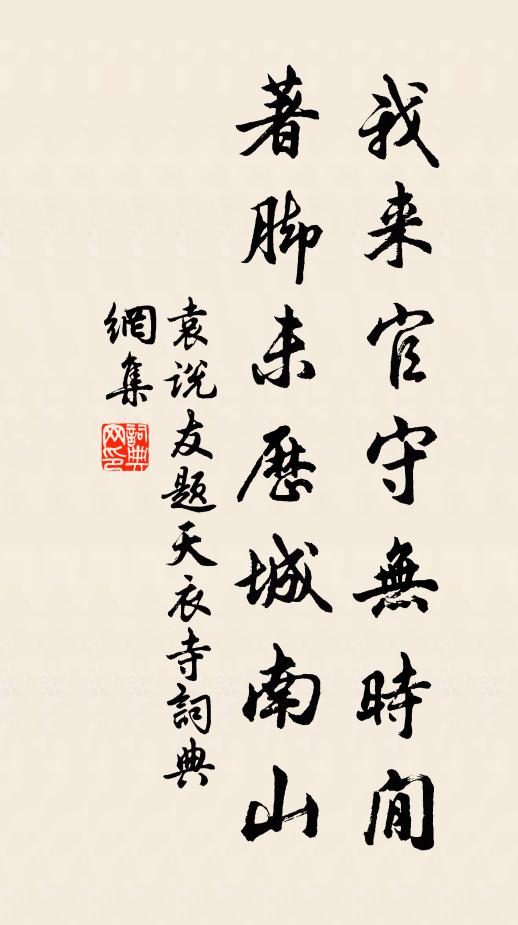 我来官守無時间
著脚未歷城南山
袁说友题天衣寺詞典
網集
詞典
网印